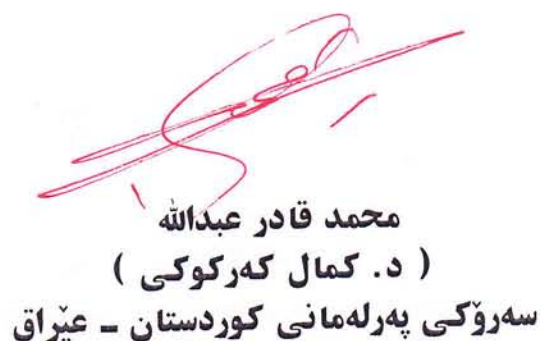 محمد قادر عبدالله
( د. كمال كەركوكى )
سەرۆكى پەرلەمانى كوردستان ـ عێراق